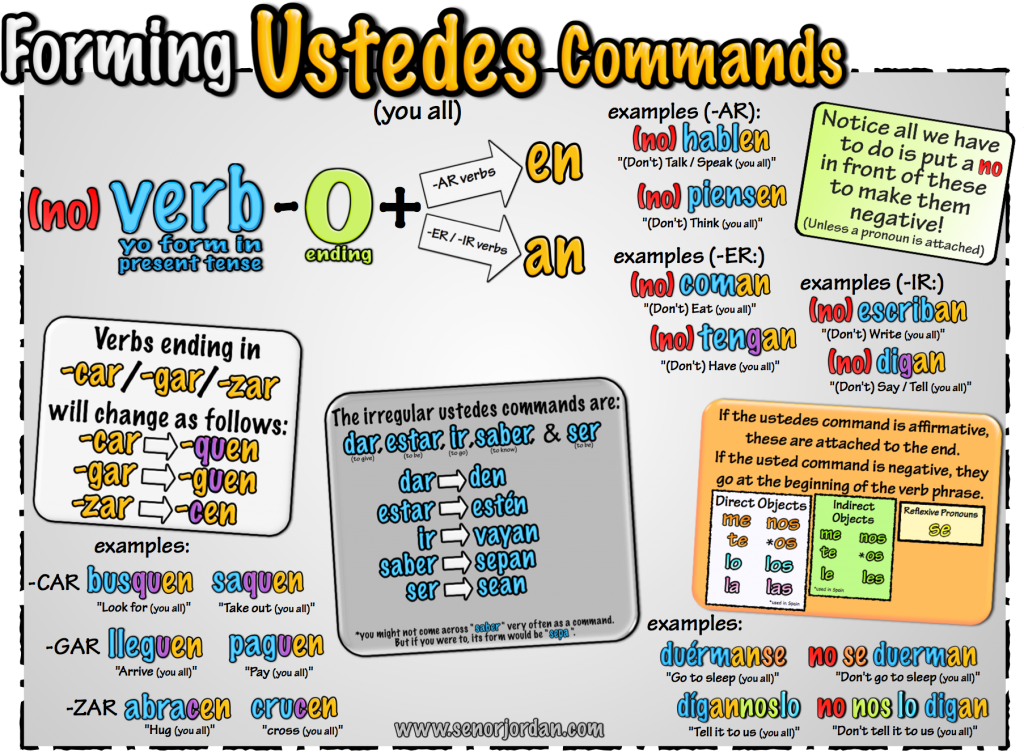 Forming Ustedes Commands
(you all)
(no) verb - o +
yo form in
present tense
ending
-AR verbs
en
-ER / -IR verbs
an
examples (-AR):
(no) hablen
"(Don't) Talk / Speak (you all)"
(no) piensen
"(Don't) Think (you all)"
examples (-ER:)
(no) coman
"(Don't) Eat (you all)"
(no) tengan
"(Don't) Have (you all)"
Notice all we have
to do is put a no
in front of these
to make them
negative!
(Unless a pronoun is attached)
examples (-IR:)
(no) escriban
"(Don't) Write (you all)"
(no) digan
"(Don't) Say / Tell (you all)"
Verbs ending in
-car/-gar/-zar
will change as follows:
-car -quen
-gar -guen
-zar -cen
examples:
-CAR busquen saquen
"Look for (you all)" "Take out (you all)"
-GAR lleguen paguen
"Arrive (you all)" "Pay (you all)"
-ZAR abracen crucen
"Hug (you all)" "cross (you all)"
The irregular ustedes commands are:
dar, estar, ir, saber, & ser
(to give) (to be) (to go) (to know) (to be)
dar den
estar estén
ir vayan
saber sepan
ser sean
*you might not come across "saber" very often as a command.
But if you were to, its form would be "sepa".
If the ustedes command is affirmative,
these are attached to the end.
If the usted command is negative, they
go at the beginning of the verb phrase.
Direct Objects
me nos
te *os
lo los
la las
*used in Spain
Indirect
Objects
me nos
te *os
le les
*used in Spain
Reflexive Pronouns
se
examples:
duérmanse no se duerman
"Go to sleep (you all)" "Don't go to sleep (you all)"
dígannoslo no nos lo digan
"Tell it to us (you all)" "Don't tell it to us (you all)"
www.senorjordan.com